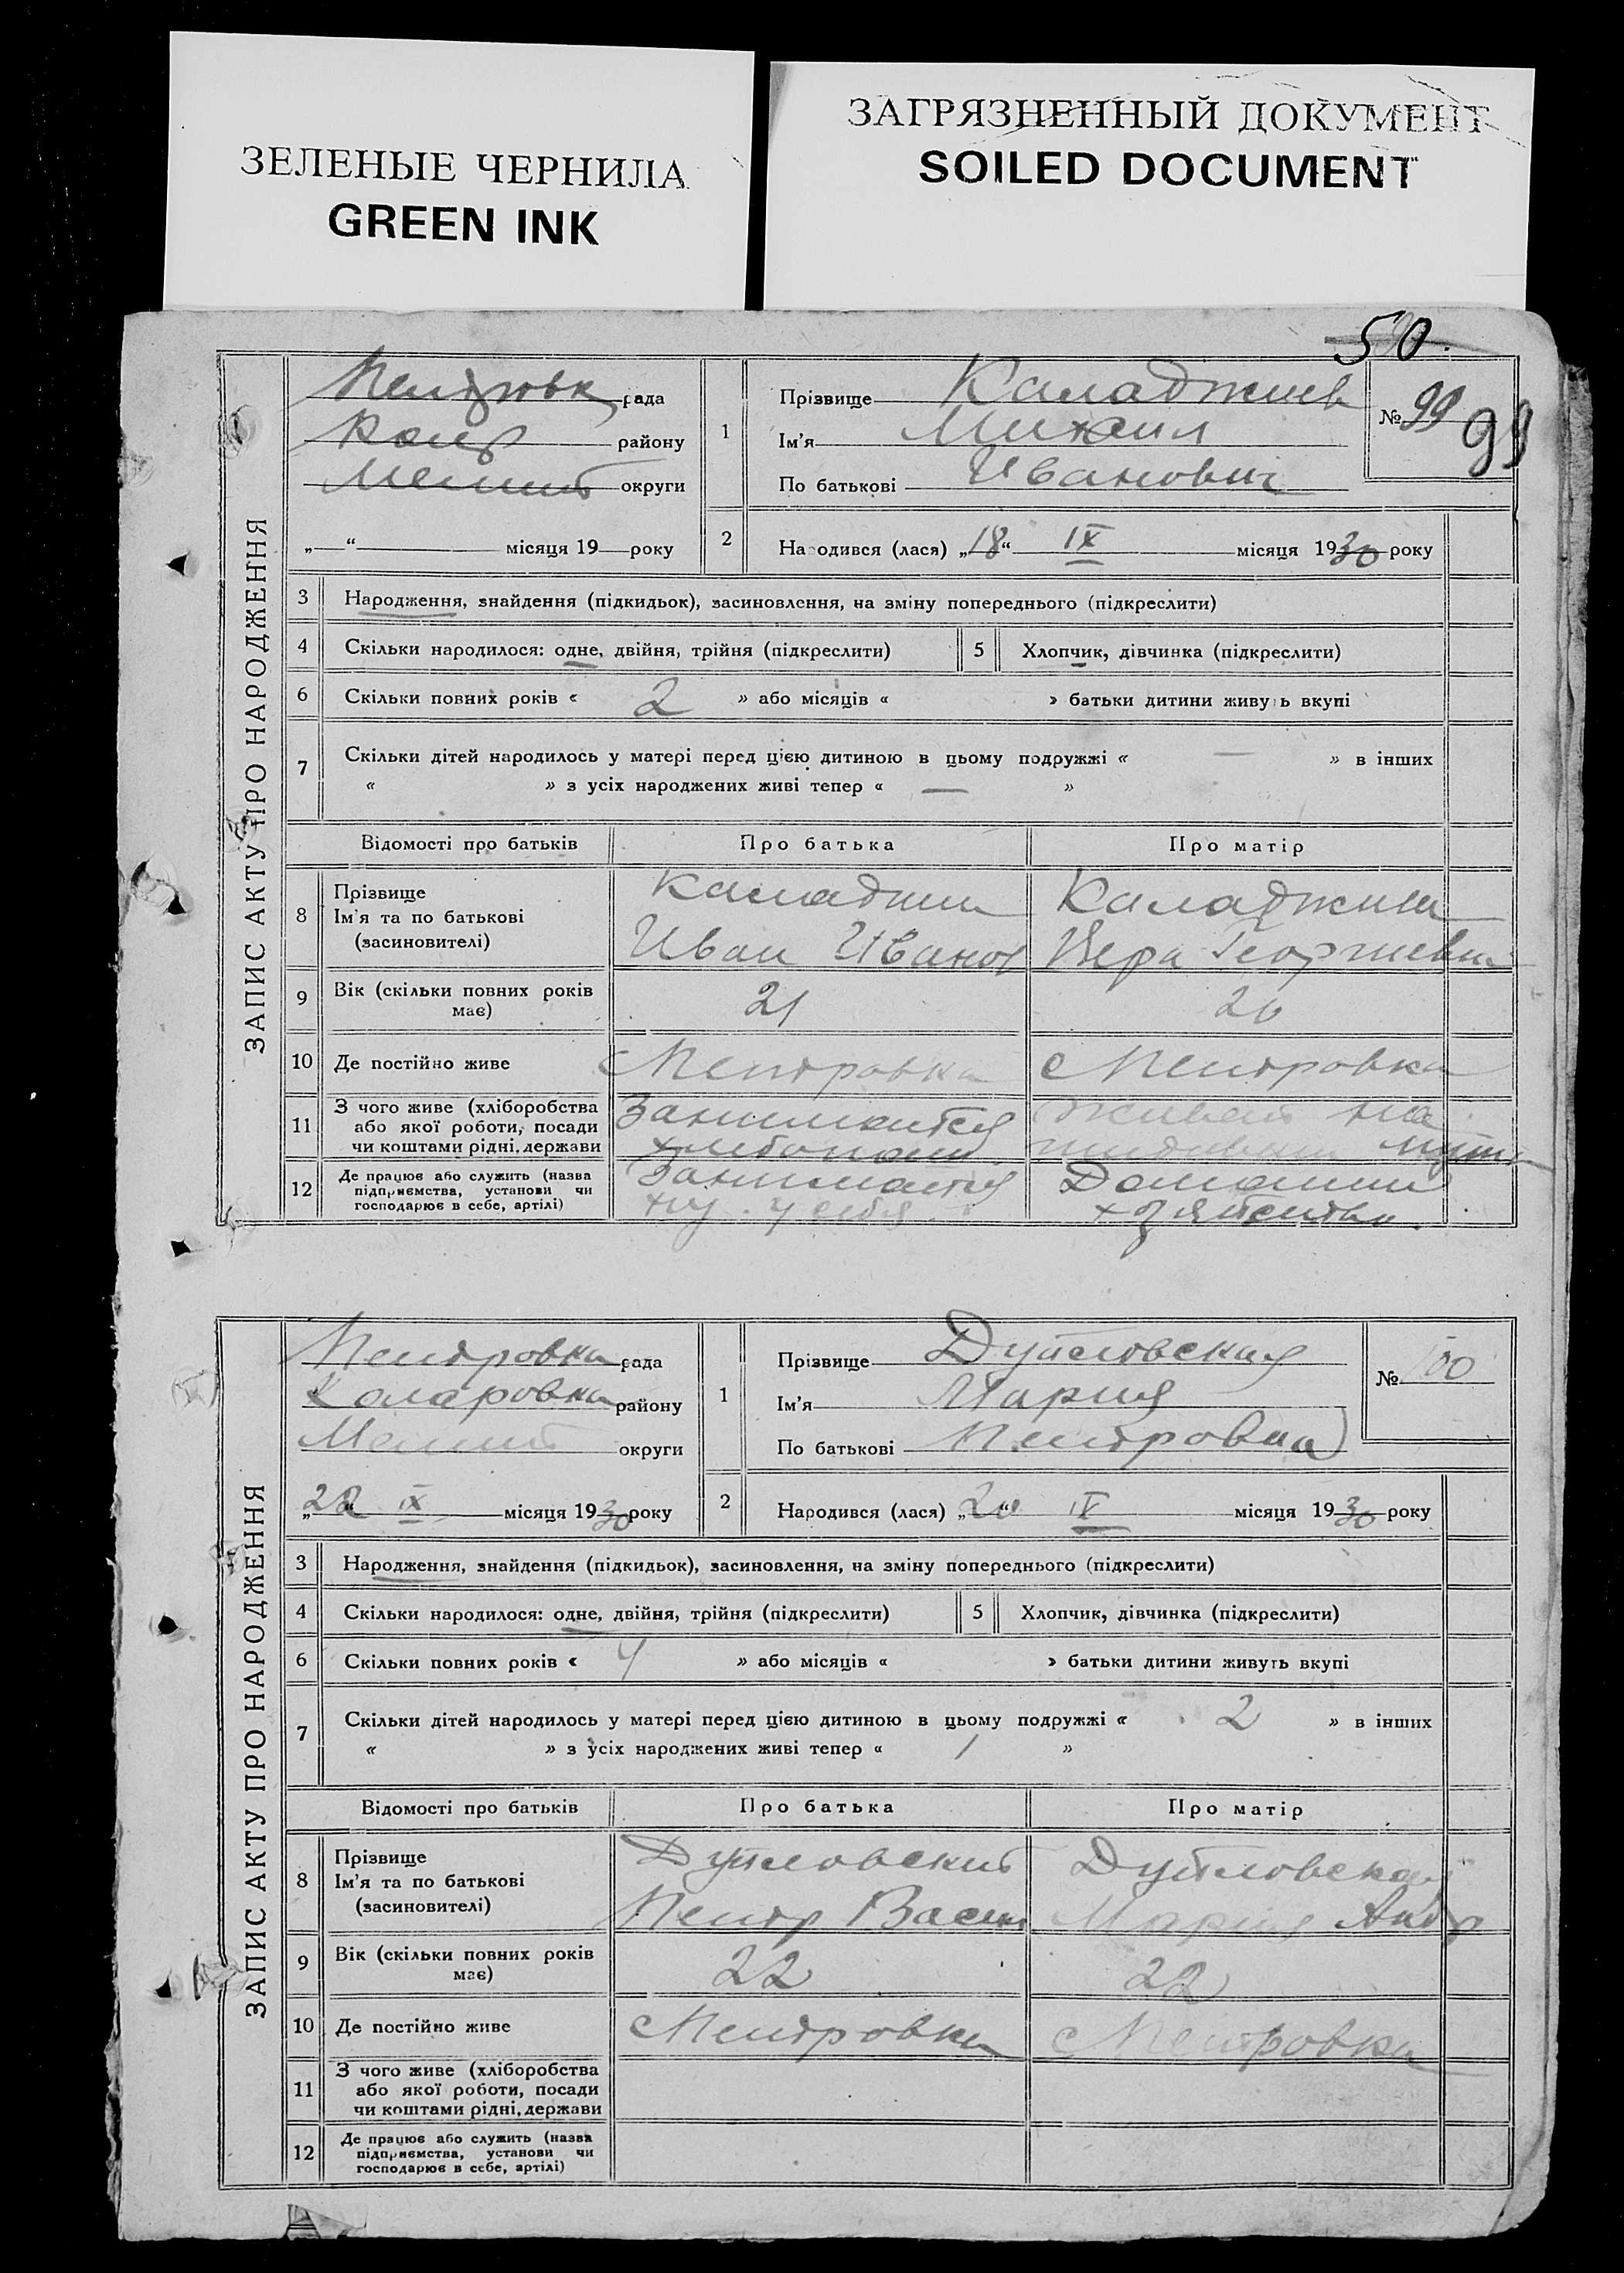 ЗЕЛЕНЫЕ ЧЕРНИЛА
GREEN INK
ЗАГРЯЗНЕННЫЙ ДОКУМЕНТ
SOILED DOCUMENT
50.
ЗАПИС АКТУ ПРО НАРОДЖЕННЯ
рада
району
округи
„ “ місяця 19 року
1
Прізвище Каладжиев
Ім'я Михаил
По батькові Иванович
№ 99 99
2
Народився (лася) „18“ IX місяця 1930 року
3 Народження, знайдення (підкидьок), засиновлення, на зміну попереднього (підкреслити)
4 Скільки народилося: одне, двійня, трійня (підкреслити)
5 Хлопчик, дівчинка (підкреслити)
6 Скільки повних років « 2 » або місяців « » батьки дитини живуть вкупі
7 Скільки дітей народилось у матері перед цією дитиною в цьому подружжі « — » в інших
« » з усіх народжених живі тепер « — »
Відомості про батьків Про батька Про матір
8 Прізвище
Ім'я та по батькові
(засиновителі)
Иван Иванов
Каладжиева
Вера Георгиевна
9 Вік (скільки повних років
має)
21
10 Де постійно живе
с Петровка
с Петровка
11 З чого живе (хліборобства
або якої роботи, посади
чи коштами рідні, держави
Занимается
на
12 Де працює або служить (назва
підприємства, установи чи
господарює в себе, артілі)
Занимается
у себя
ЗАПИС АКТУ ПРО НАРОДЖЕННЯ
Петровка рада
Коларовка району
Мелит округи
„22“ IX місяця 1930 року
1
Прізвище Дутловская
Ім'я Мария
По батькові Петровна
№ 100
2
Народився (лася) „20“ місяця 1930 року
3 Народження, знайдення (підкидьок), засиновлення, на зміну попереднього (підкреслити)
4 Скільки народилося: одне, двійня, трійня (підкреслити)
5 Хлопчик, дівчинка (підкреслити)
6 Скільки повних років « 4 » або місяців « » батьки дитини живуть вкупі
7 Скільки дітей народилось у матері перед цією дитиною в цьому подружжі « 2 » в інших
« » з усіх народжених живі тепер « 1 »
Відомості про батьків Про батька Про матір
8 Прізвище
Ім'я та по батькові
(засиновителі)
Дутловский
Петр Васил
Дутловская
Мария Андр
9 Вік (скільки повних років
має)
22
22
10 Де постійно живе
с Петровка
с Петровка
11 З чого живе (хліборобства
або якої роботи, посади
чи коштами рідні, держави
12 Де працює або служить (назва
підприємства, установи чи
господарює в себе, артілі)